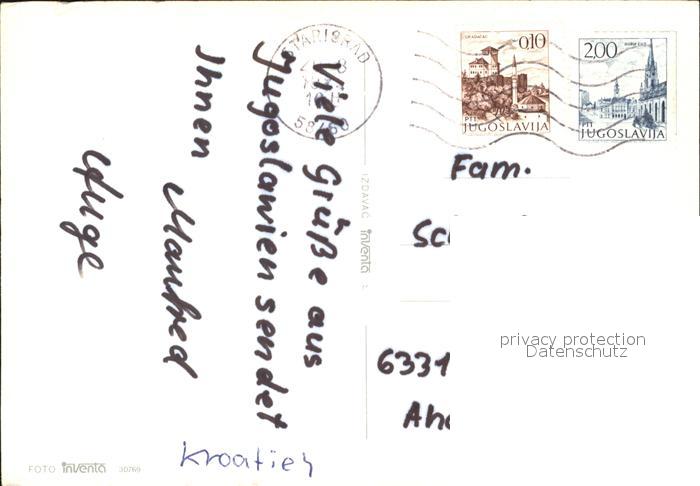 Viele Grüße aus
Jugoslawien sendet
Ihnen
Manfred
Kroatien
FOTO inventa 30769
IZDAVAČ inventa
STARIGRAD
0,10
PTT
JUGOSLAVIJA
2,00
PTT
JUGOSLAVIJA
Fam.
privacy protection
Datenschutz
6331